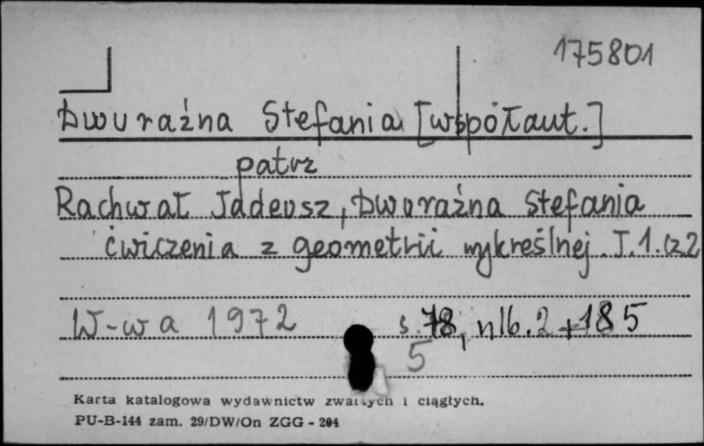 175801
Dwuraźna Stefania [współaut.]
patrz
Rachwał Tadeusz, Dwuraźna Stefania
ćwiczenia z geometrii wykreślnej. T.1. cz 2
W-wa 1972 s. 78, nlb. 2 + 185
5
Karta katalogowa wydawnictw zwartych i ciągłych.
PU-B-144 zam. 29/DW/On ZGG - 204